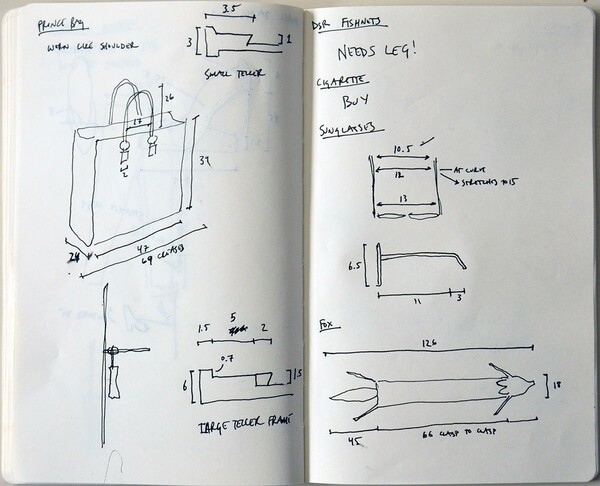 PRINCE BAG
WORN LIKE SHOULDER
3.5
3
1
SMALL TELLER
26
17
2
47
69 CREASED
1.5
5
2
0.7
6
1.5
LARGE TELLER FRAME
DSR FISHNETS
NEEDS LEG!
CIGARETTE
BUY
SUNGLASSES
10.5
12
AT CURVE
STRETCHES TO 15
13
6.5
11
3
FOX
126
18
45
66 CLASP TO CLASP